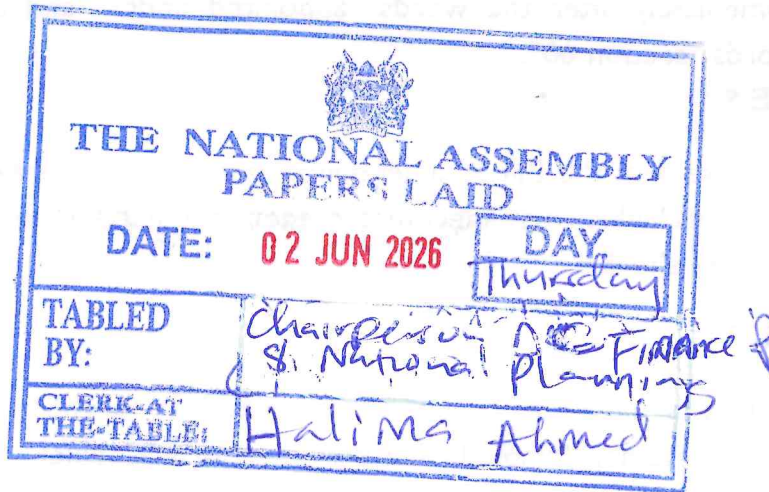 THE NATIONAL ASSEMBLY
PAPERS LAID
DATE: 02 JUN 2026 DAY
Thursday
TABLED BY: Chairperson Finance &
& National Planning
CLERK-AT THE-TABLE: Halima Ahmed